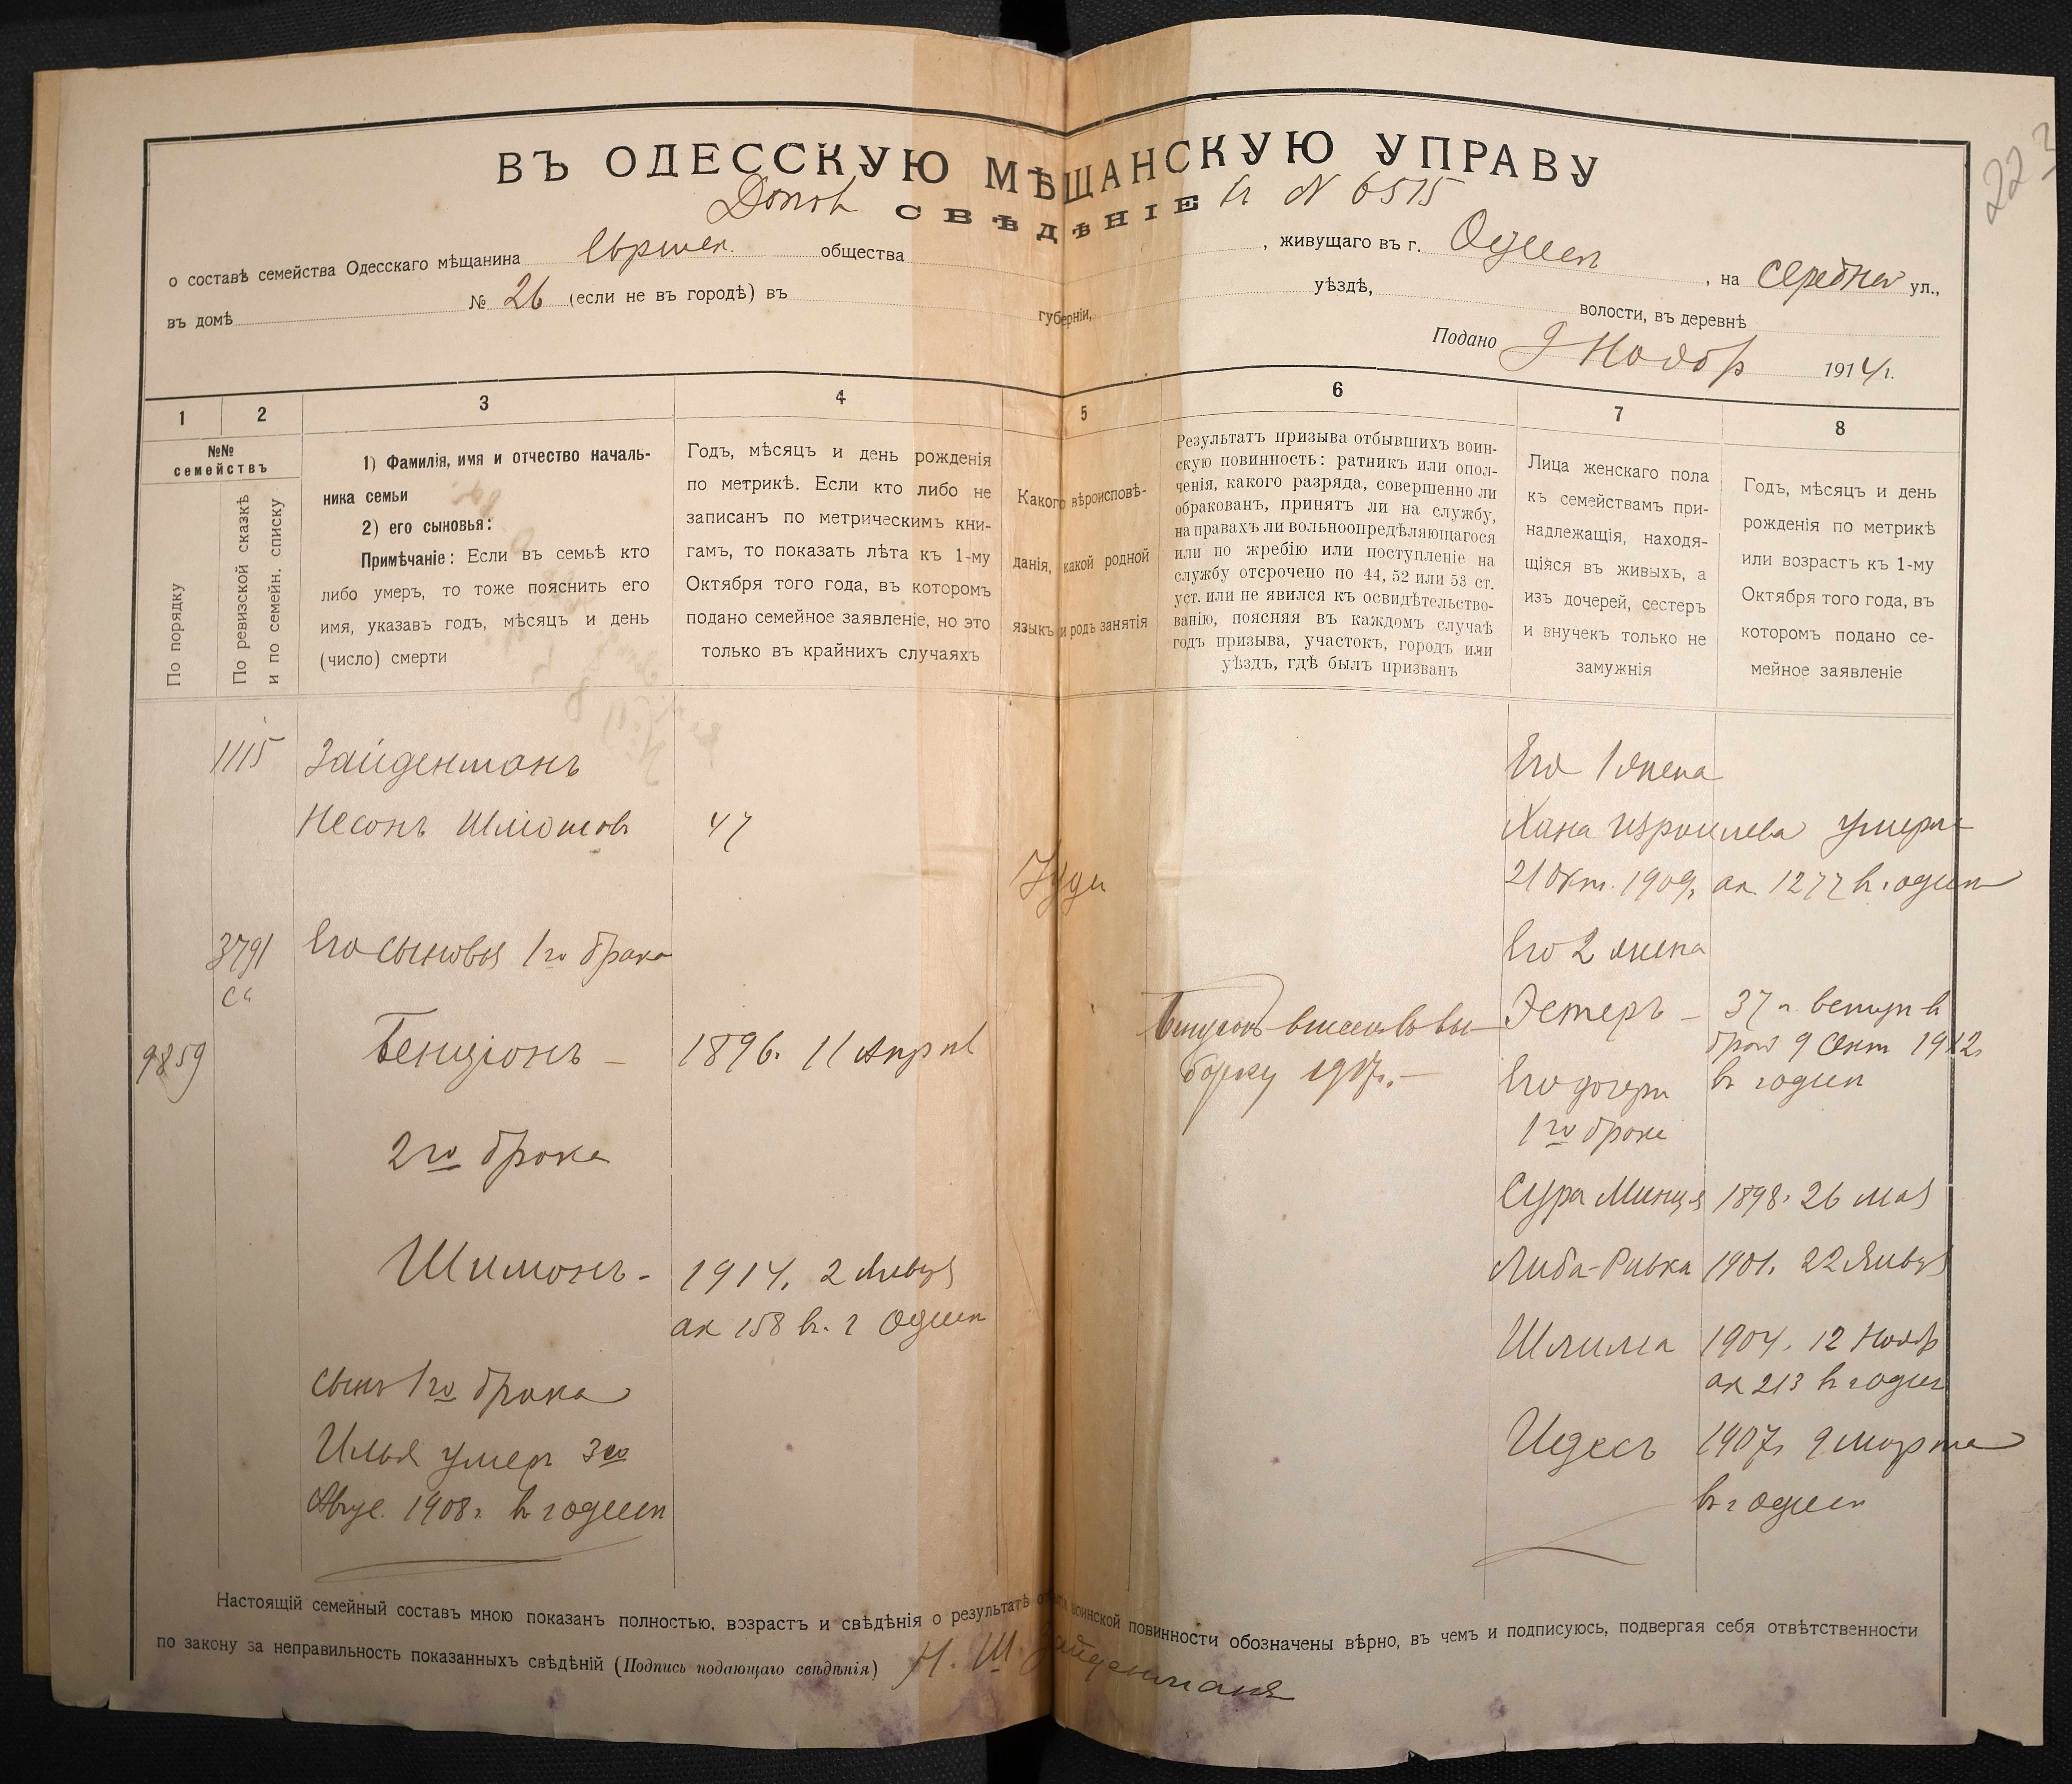 223
ВЪ ОДЕССКУЮ МѢЩАНСКУЮ УПРАВУ
СВѢДѢНІЕ к N 6515
о составѣ семейства Одесскаго мѣщанина Еврейск. общества , живущаго въ г. Одессѣ , на Средней ул.,
въ домѣ № 26 (если не въ городѣ) въ губерніи, уѣздѣ, волости, въ деревнѣ
Подано 9 Ноябр 1914 г.
1
2
3
4
5
6
7
8
№№
семействъ
По порядку
По ревизской сказкѣ
и по семейн. списку
1) Фамилія, имя и отчество началь-
ника семьи
2) его сыновья:
Примѣчаніе: Если въ семьѣ кто
либо умеръ, то тоже пояснить его
имя, указавъ годъ, мѣсяцъ и день
(число) смерти
Годъ, мѣсяцъ и день рожденія
по метрикѣ. Если кто либо не
записанъ по метрическимъ кни-
гамъ, то показать лѣта къ 1-му
Октября того года, въ которомъ
подано семейное заявленіе, но это
только въ крайнихъ случаяхъ
Какого вѣроисповѣ-
данія, какой родной
языкъ и родъ занятія
Результатъ призыва отбывшихъ воин-
скую повинность: ратникъ или опол-
ченія, какого разряда, совершенно ли
обракованъ, принятъ ли на службу,
на правахъ ли вольноопредѣляющагося
или по жребію или поступленіе на
службу отсрочено по 44, 52 или 53 ст.
уст. или не явился къ освидѣтельство-
ванію, поясняя въ каждомъ случаѣ
годъ призыва, участокъ, городъ или
уѣздъ, гдѣ былъ призванъ
Лица женскаго пола
къ семействамъ при-
надлежащія, находя-
щіяся въ живыхъ, а
изъ дочерей, сестеръ
и внучекъ только не
замужнія
Годъ, мѣсяцъ и день
рожденія по метрикѣ
или возрастъ къ 1-му
Октября того года, въ
которомъ подано се-
мейное заявленіе
1115 Зайденманъ
Несонъ Шліомовъ 47
Іуд.
3791 Его сыновья 1го брака
9859 Бенціонъ – 1896. 11 Апрѣл
2го брака
Шимонъ - 1914. 2 Январ
ак 158 въ г Одессѣ
сынъ 1го брака
Илья умеръ 3го
Авгус. 1908 г. въ г одессѣ
борку 1917г. –
Его 1 жена
Хана Израилева умерла
21 Окт. 1909 г. ак 1277 в г. одессѣ
Его 2 жена
Эстеръ – 37 л. вступ. в
брак 9 Окт 1912 г.
въ г одессѣ
Его дочери
1го брака
Сура Минця 1898. 26 мая
Либа-Ривка 1901. 22 Январ
Шлима 1904. 12 Нояб
ак 213 в г одес
Идесъ 1907г 9 марта
въ г одессѣ
Настоящій семейный составъ мною показанъ полностью, возрастъ и свѣдѣнія о результатѣ воинской повинности обозначены вѣрно, въ чемъ и подписуюсь, подвергая себя отвѣтственности
по закону за неправильность показанныхъ свѣдѣній (Подпись подающаго свѣдѣнія) Н. Ш. Зайденманъ